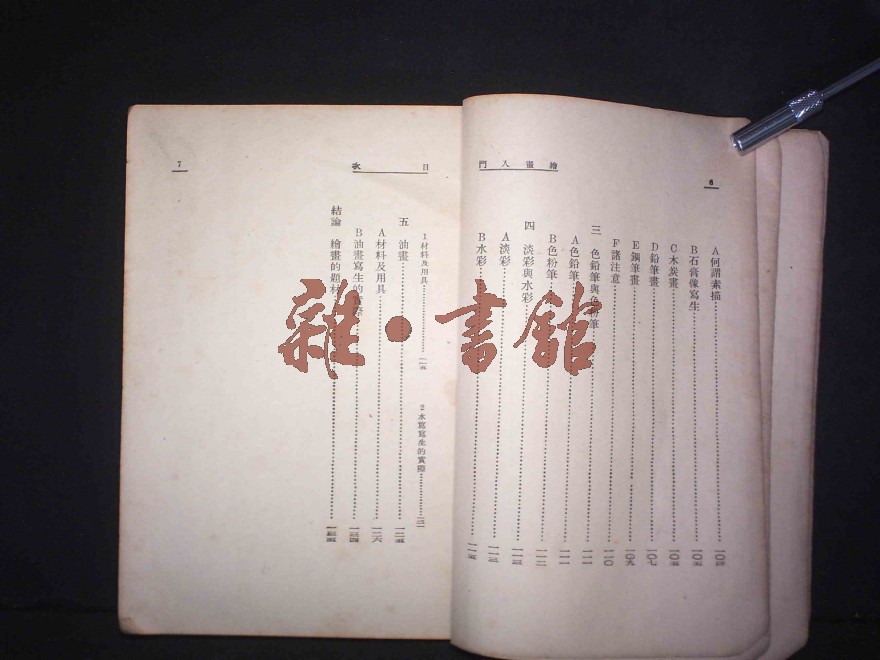 繪畫入門
6
A何謂素描…一〇四
B石膏像寫生…一〇五
C木炭畫…一〇五
D鉛筆畫…一〇七
E鋼筆畫…一〇九
F諸注意…一一〇
三 色鉛筆與色粉筆…一一一
A色鉛筆…一一一
B色粉筆…一一二
四 淡彩與水彩…一一三
A淡彩…一一三
B水彩…一一五
目次
7
1材料及用具…一一五
2水寫寫生的實際
五 油畫…一二五
A材料及用具…一二六
B油畫寫生的實際…一三四
結論 繪畫的題材
雜·書館